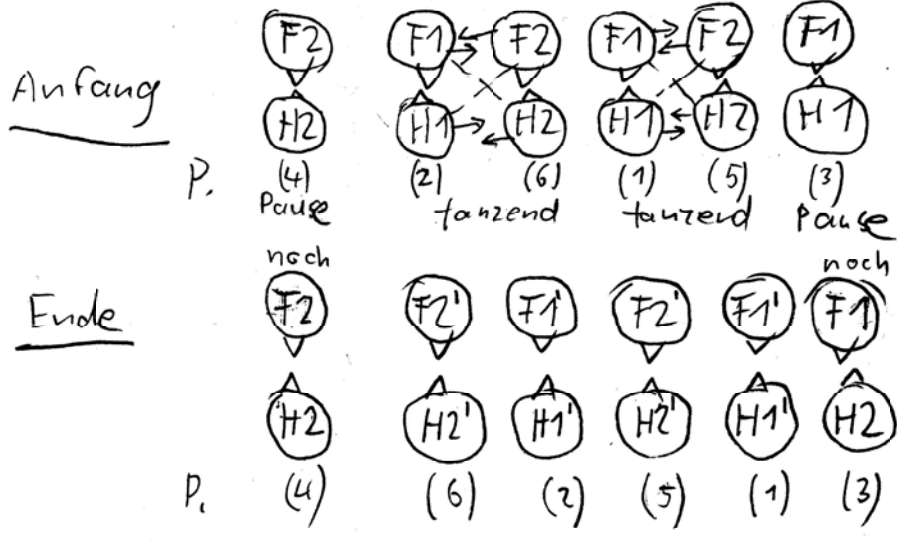 F2 F1 F2 F1 F2 F1
Anfang
H2 H1 H2 H1 H2 H1
P. (4) (2) (6) (1) (5) (3)
Pause tanzend tanzend Pause
noch noch
Ende
F2 F2' F1' F2' F1' F1
H2 H2' H1' H2' H1' H2
P. (4) (6) (2) (5) (1) (3)